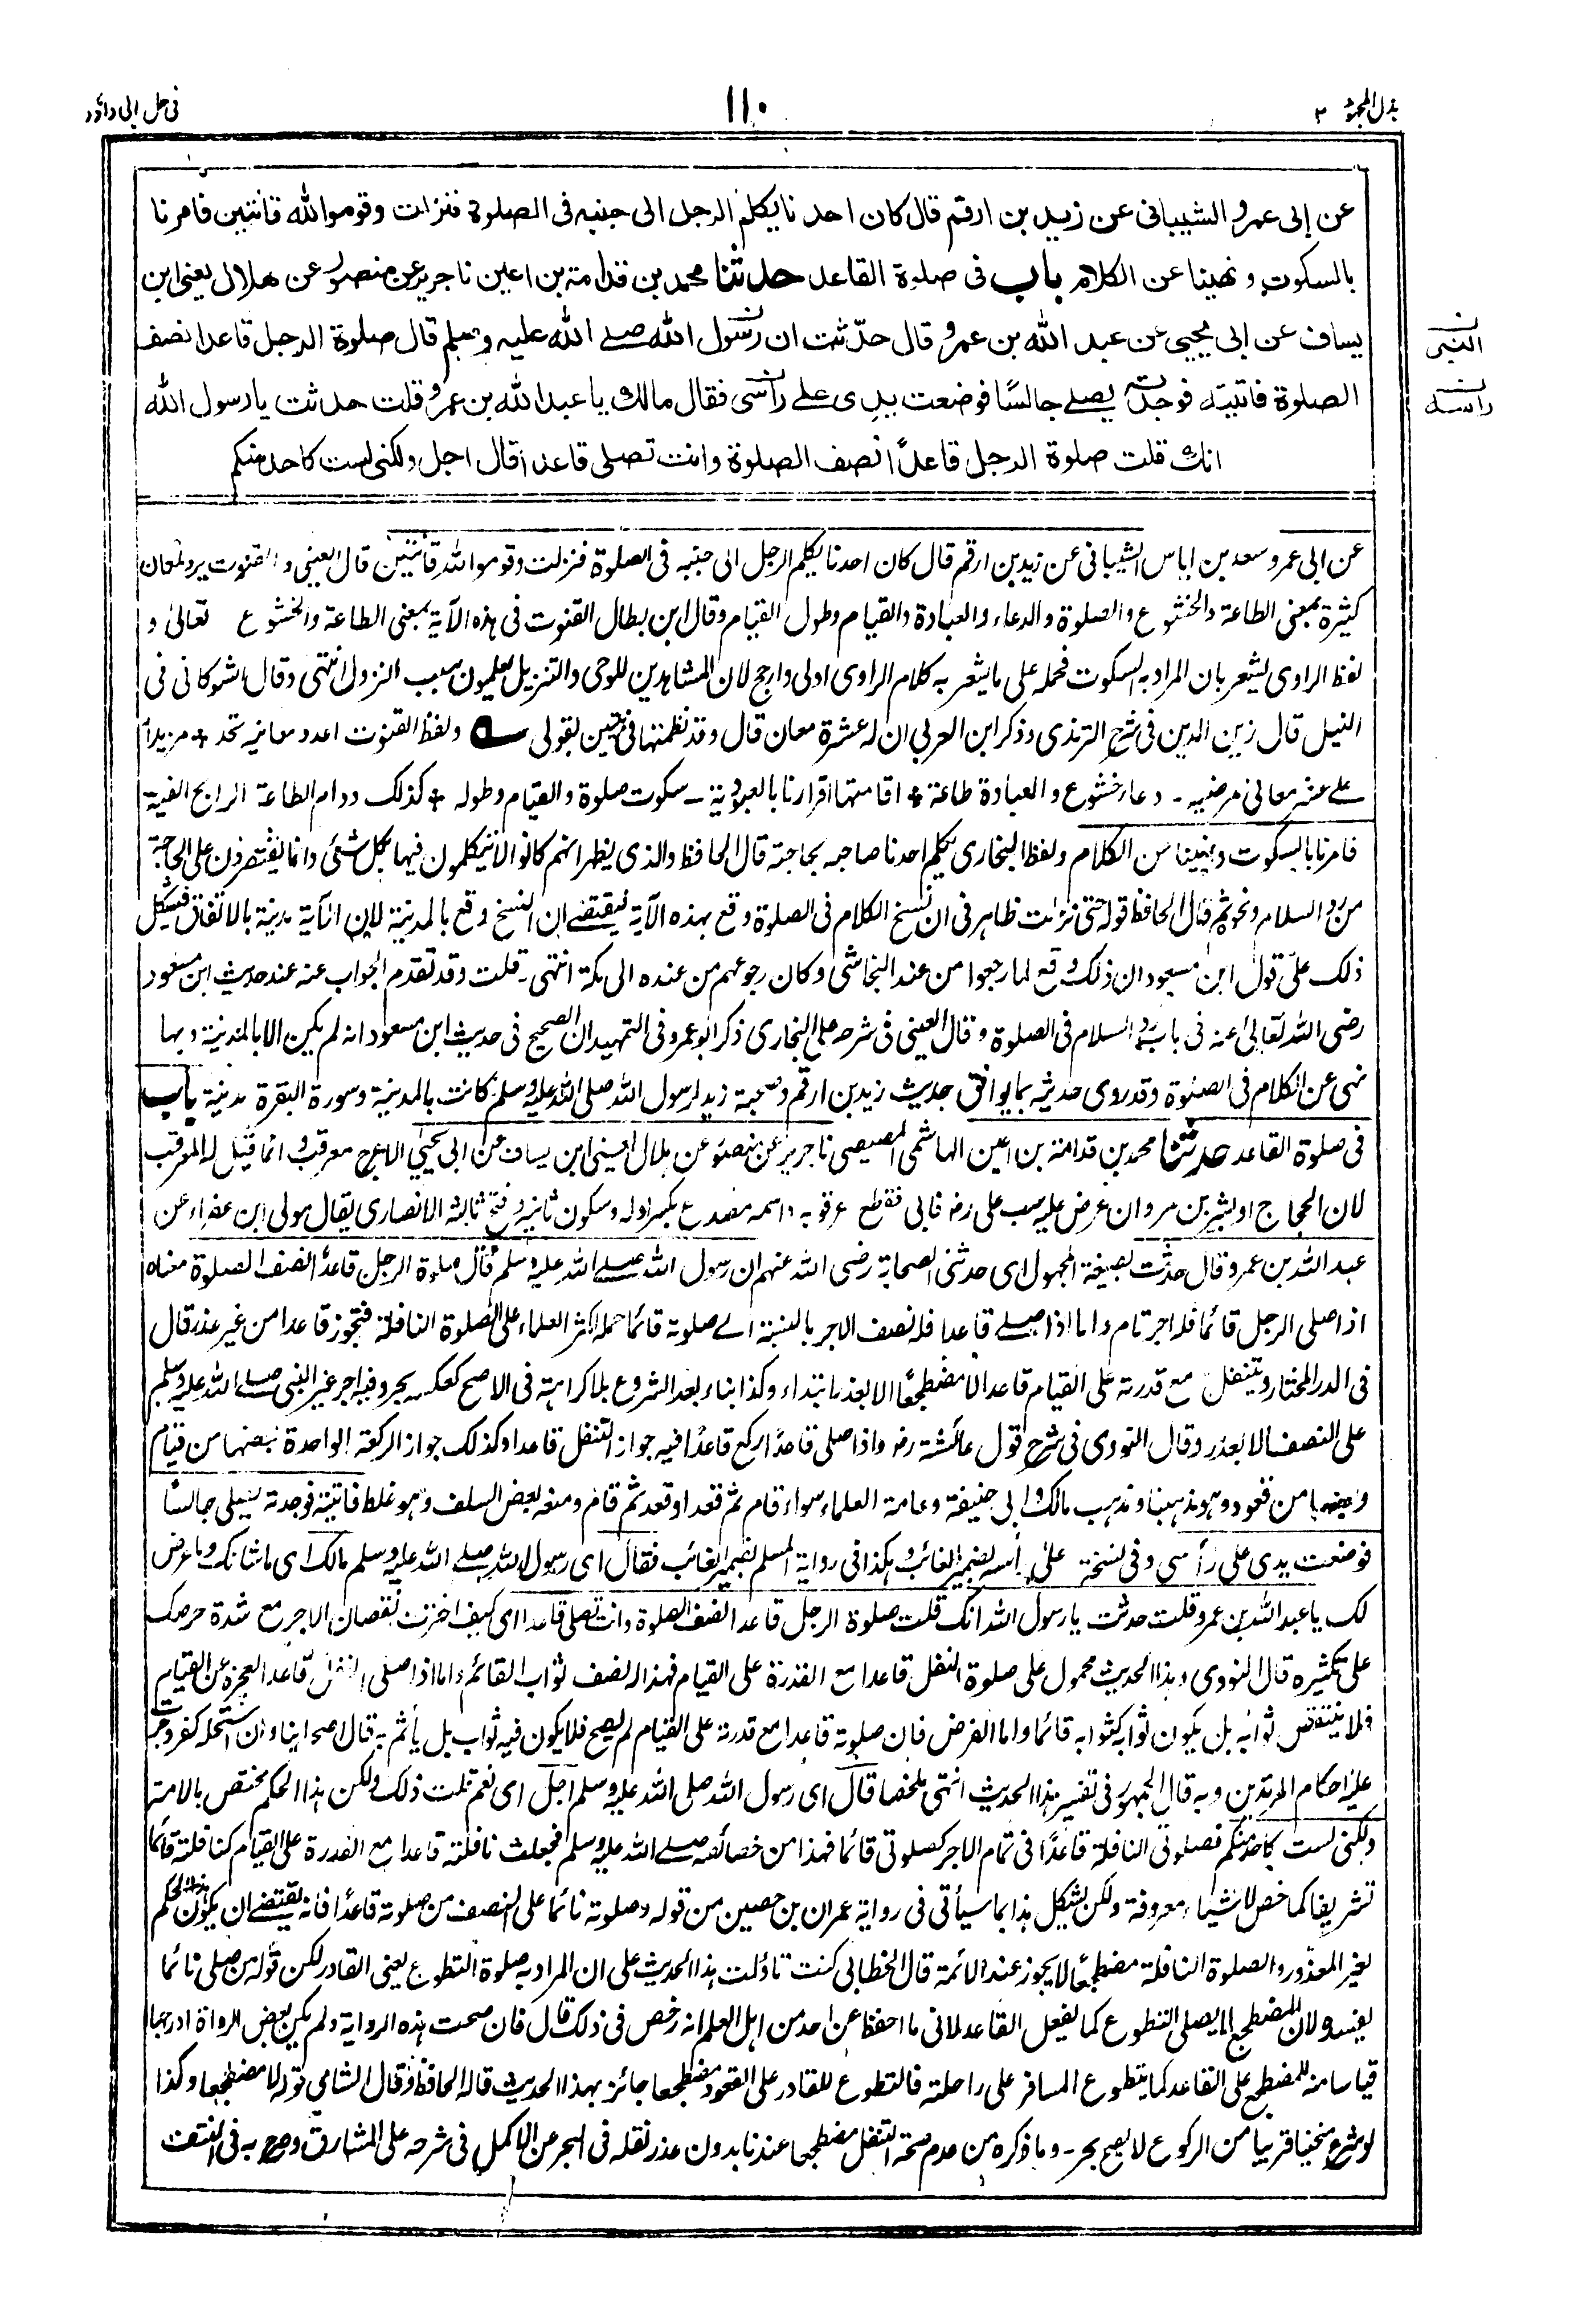 بذل المجهود ٢
١١٠
فى حل ابى داؤد
عن ابى عمرو الشيبانى عن زيد بن ارقم قال كان احدنا يكلم الرجل الى جنبه فى الصلوة فنزلت وقوموا لله قانتين فامرنا
بالسكوت ونهينا عن الكلام باب فى صلوة القاعد حدثنا محمد بن قدامة بن اعين نا جرير عن منصور عن هلال يعنى ابن
يساف عن ابى يحيى عن عبد الله بن عمرو قال حدّثت ان رسول الله صلے الله عليه وسلم قال صلوة الرجل قاعدا نصف
النبى
الصلوة فاتيته فوجدته يصلے جالسًا فوضعت يدى علے رأسى فقال مالك يا عبد الله بن عمرو قلت حدثت يا رسول الله
راسه
انك قلت صلوة الرجل قاعدًا نصف الصلوة وانت تصلى قاعدا قال اجل ولكنى لست كاحد منكم
عن ابى عمرو سعد بن اياس الشيبانى عن زيد بن ارقم قال كان احدنا يكلم الرجل الى جنبه فى الصلوة فنزلت وقوموا لله قانتين قال العينى والقنوت يرد لمعان
كثيرة بمعنى الطاعة والخشوع والصلوة والدعاء والعبادة والقيام وطول القيام وقال ابن بطال القنوت فى هذه الآية بمعنى الطاعة والخشوع تعالى و
لفظ الراوى يشعر بان المراد به السكوت فحمله على ما يشعر به كلام الراوى اولى وارجح لان المشاهدين للوحى والتنزيل يعلمون سبب النزول انتهى وقال الشوكانى فى
النيل قال زين الدين فى شرح الترمذى وذكر ابن العربى ان له عشرة معان قال وقد نظمتها فى بيتين بقولى ؎ ولفظ القنوت اعدد معانيه تجد + مزيدا
علے عشر معانى مرضيه - دعاء خشوع والعبادة طاعة + اقامتها اقرارنا بالعبودية - سكوت صلوة والقيام وطوله + كذلك دوام الطاعة الرابح الفيه
فامرنا بالسكوت ونهينا عن الكلام ولفظ البخارى يكلم احدنا صاحبه بحاجته قال الحافظ والذى يظهر انهم كانوا لا يتكلمون فيها بكل شئى وانما يقتصرون على الحاجة
من رد السلام ونحوه ثم قال الحافظ قوله حتى نزلت ظاهر فى ان نسخ الكلام فى الصلوة وقع بهذه الآية فيقتضے ان النسخ وقع بالمدينة لان الآية مدنية بالاتفاق فيشكل
ذلك على قول ابن مسعود ان ذلك وقع لما رجعوا من عند النجاشى وكان رجوعهم من عنده الى مكة انتهى - قلت وقد تقدم الجواب عنه عند حديث ابن مسعود
رضى الله تعالى عنه فى باب رد السلام فى الصلوة وقال العينى فى شرحه على البخارى ذكر ابو عمرو فى التمهيد ان الصحيح فى حديث ابن مسعود انه لم يكن الا بالمدينة وبها
نهى عن الكلام فى الصلوة وقد روى حديثه بما يوافق حديث زيد بن ارقم وصحبة زيد لرسول الله صلى الله عليه وسلم كانت بالمدينة وسورة البقرة مدنية باب
فى صلوة القاعد حدثنا محمد بن قدامة بن اعين الهاشمى المصيصى نا جرير عن منصور عن هلال يعنى ابن يساف عن ابى يحيىٰ الاعرج معرقب وانما قيل له المعرقب
لان الحجاج او بشير بن مروان عرض عليه سب على رضه فابى فقطع عرقوبه واسمه مصدع بكسر اوله وسكون ثانيه وفتح ثالثه الانصارى يقال مولى ابن عفراء عن
عبد الله بن عمرو قال حدثت بصيغة المجهول اى حدثنى الصحابة رضى الله عنهم ان رسول الله صلے الله عليه وسلم قال صلوة الرجل قاعدًا نصف الصلوة معناه
اذا صلى الرجل قائما فله اجر تام واما اذا صلے قاعدا فله نصف الاجر بالنسبة الے صلوته قائما حمله اكثر العلماء على الصلوة النافلة فتجوز قاعدا من غير عذر قال
فى الدر المختار ويتنفل مع قدرته على القيام قاعدا لا مضطجعًا الا بعذر ابتداء وكذا بناء بعد الشروع بلا كراهة فى الاصح كعكسه بحر وفيه اجر غير النبى صلے الله عليه وسلم
على النصف الا بعذر وقال النووى فى شرح قول عائشة رضه واذا صلى قاعدًا ركع قاعدًا فيه جواز التنفل قاعدا وكذلك جواز الركعة الواحدة بعضها من قيام
وبعضها من قعود وهو مذهبنا ومذهب مالك وابى حنيفة وعامة العلماء سواء قام ثم قعد او قعد ثم قام ومنعه بعض السلف وهو غلط فاتيته فوجدته يصلى جالسًا
فوضعت يدى على رأسى وفى نسخة على رأسه بضمير الغائب وهكذا فى رواية المسلم بضمير الغائب فقال اى رسول الله صلے الله عليه وسلم مالك اى ما شانك وما عرض
لك يا عبد الله بن عمرو قلت حدثت يا رسول الله انك قلت صلوة الرجل قاعدا نصف الصلوة وانت تصلى قاعدا اى كيف اخترت نقصان الاجر مع شدة حرصك
على تكثيره قال النووى وهذا الحديث محمول على صلوة النفل قاعدا مع القدرة على القيام فهذا له نصف ثواب القائم واما اذا صلى النفل قاعدا لعجزه عن القيام
فلا ينتقص ثوابه بل يكون ثوابه كثوابه قائما واما الفرض فان صلوته قاعدا مع قدرته على القيام لم يصح فلا يكون فيه ثواب بل يأثم به قال اصحابنا وان استحله كفر وجرت
عليه احكام المرتدين وبه قال الجمهور فى تفسير هذا الحديث انتهى ملخصا قال اى رسول الله صلى الله عليه وسلم اجل اى نعم قلت ذلك ولكن هذا الحكم مختص بالامة
ولكنى لست كاحد منكم فصلوتى النافلة قاعدًا فى تمام الاجر كصلوتى قائما فهذا من خصائصه صلے الله عليه وسلم فجعلت نافلته قاعدا مع القدرة على القيام كنافلته قائما
تشريفا كما خص لاشياء معروفة ولكن يشكل هذا بما سيأتى فى رواية عمران بن حصين من قوله وصلوته نائما على النصف من صلوته قاعدًا فانه يقتضے ان يكون هذا الحكم
لغير المعذور والصلوة النافلة مضطجعًا لا يجوز عند الائمة قال الخطابى كنت تاولت هذا الحديث على ان المراد به صلوة التطوع يعنى القادر لكن قوله من صلى نائما
يفسده لان المضطجع لا يصلى التطوع كما يفعل القاعد لانى ما احفظ عن احد من اهل العلم انه رخص فى ذلك قال فان صحت هذه الرواية ولم يكن بعض الرواة ادرجها
قياسا منه للمضطجع على القاعد كما يتطوع المسافر على راحلته فالتطوع للقادر على القعود مضطجعا جائز بهذا الحديث قاله الحافظ وقال الشامى قوله لا مضطجعا وكذا
لو شرع منحنيا قريبا من الركوع لا يصح بحر - وما ذكره من عدم صحة التنفل مضطجعا عندنا بدون عذر نقله فى البحر عن الاكمل فى شرحه على المشارق وصرح به فى النتف